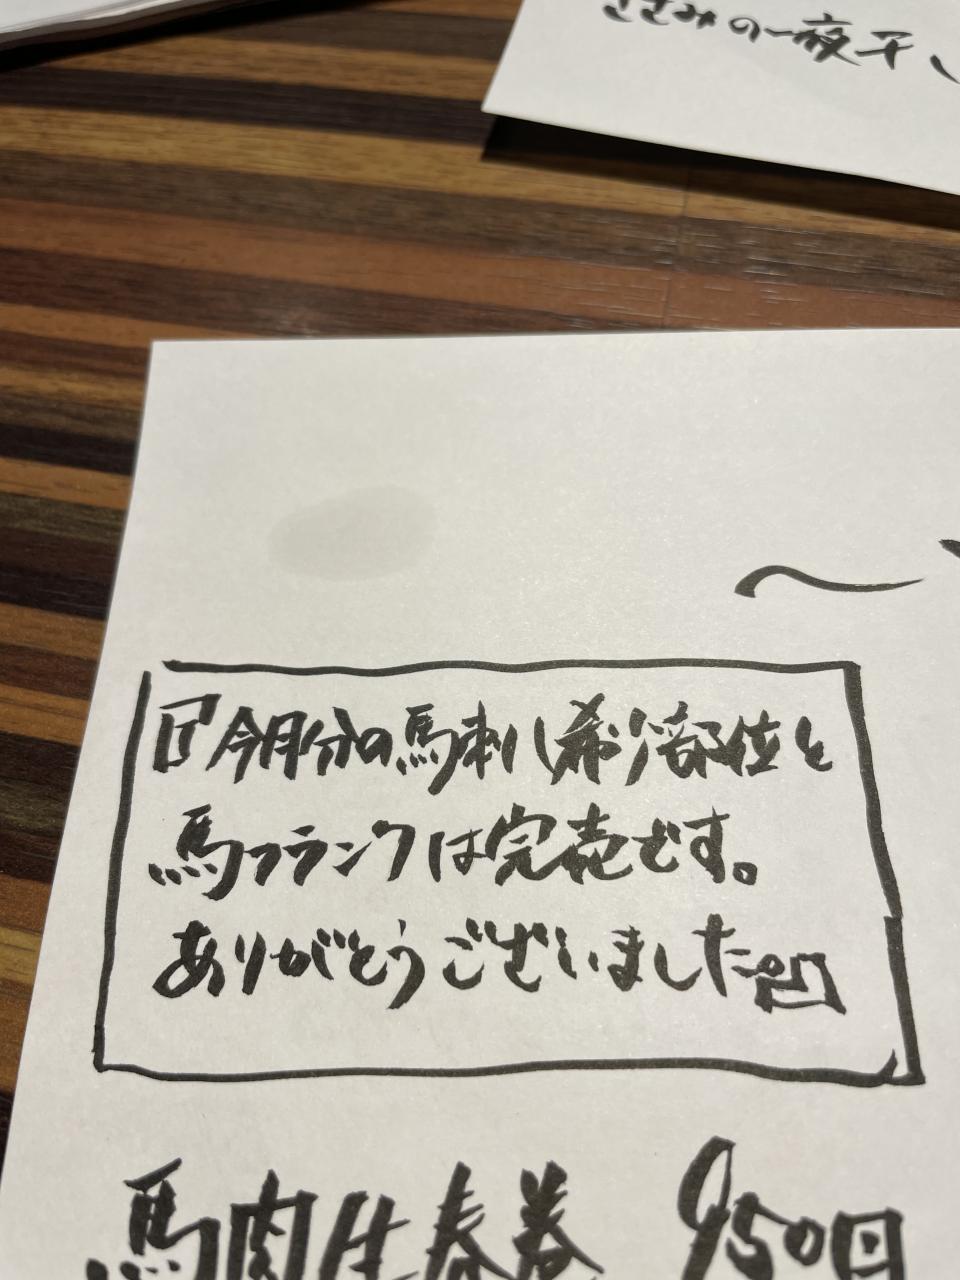 ささみの一夜干し
〜
『今月分の馬刺し希少部位と
馬フランクは完売です。
ありがとうございました。』
馬肉生春巻 950円